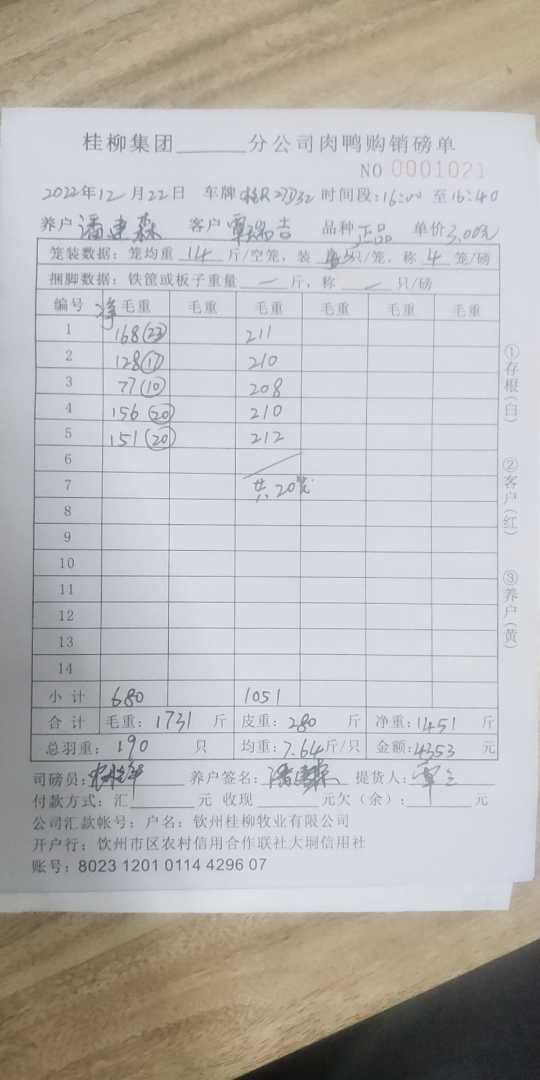 桂柳集团______分公司肉鸭购销磅单
NO 0001021
2022年12月22日 车牌 时间段:16:00至16:40
养户 潘建森 客户 覃瑞吉 品种 正品 单价 3.00元
笼装数据:笼均重 14 斤/空笼,装 只/笼,称 4 笼/磅
捆脚数据:铁筐或板子重量 — 斤,称 — 只/磅
编号 净毛重 毛重 毛重 毛重 毛重 毛重
1 168(23) 211
2 128(17) 210
3 77(10) 208
4 156(20) 210
5 151(20) 212
6
7 共20笼
8
9
10
11
12
13
14
小计 680 1051
合计 毛重:1731 斤 皮重:280 斤 净重:1451 斤
总羽重:190 只 均重:7.64斤/只 金额:4353 元
司磅员: 养户签名:潘建森 提货人:
付款方式:汇______元 收现______元欠(余):______元
公司汇款帐号:户名:钦州桂柳牧业有限公司
开户行:钦州市区农村信用合作联社大垌信用社
账号:8023 1201 0114 4296 07
①存根(白)
②客户(红)
③养户(黄)